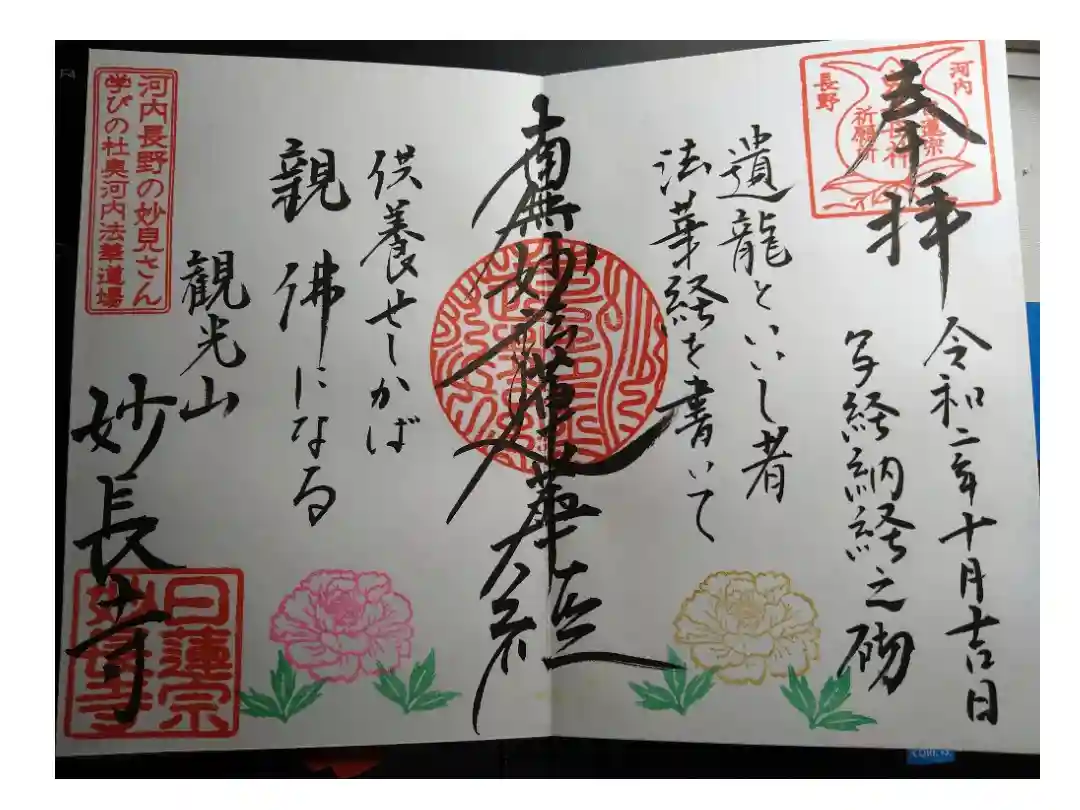 奉拝
令和二年十月吉日
写経納経之砌
遺龍といいし者
法華経を書いて
南無妙法蓮華経
供養せしかば
親佛になる
観光山
妙長寺
河内
長野
日蓮宗
祈願所
河内長野の妙見さん
学びの杜奥河内法華道場
日蓮宗
妙長寺